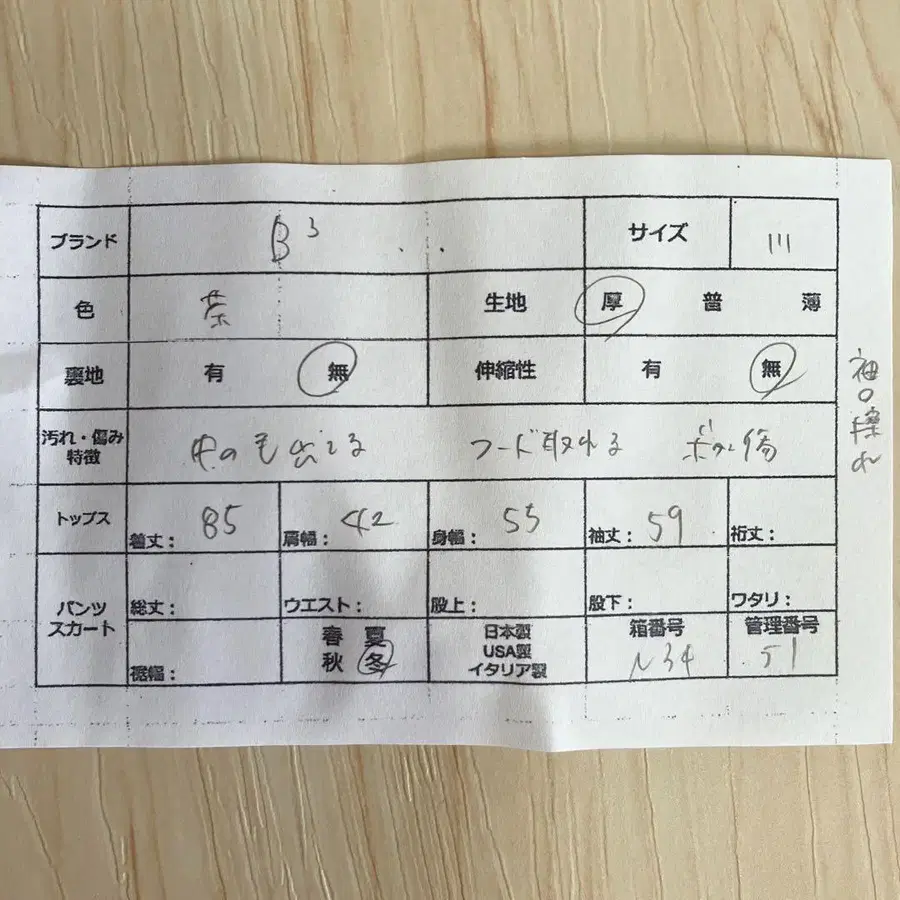 ブランド B3 サイズ III
色 茶 生地 厚 普 薄
裏地 有 無 伸縮性 有 無
汚れ・傷み
特徴
中のも出てる フード取れる ボタン傷
袖口擦れ
トップス 着丈: 85 肩幅: 42 身幅: 55 袖丈: 59 裄丈:
パンツ
スカート
総丈: ウエスト:股上: 股下: ワタリ:
裾幅:
春 夏
秋 冬
日本製
USA製
イタリア製
箱番号
N34
管理番号
51